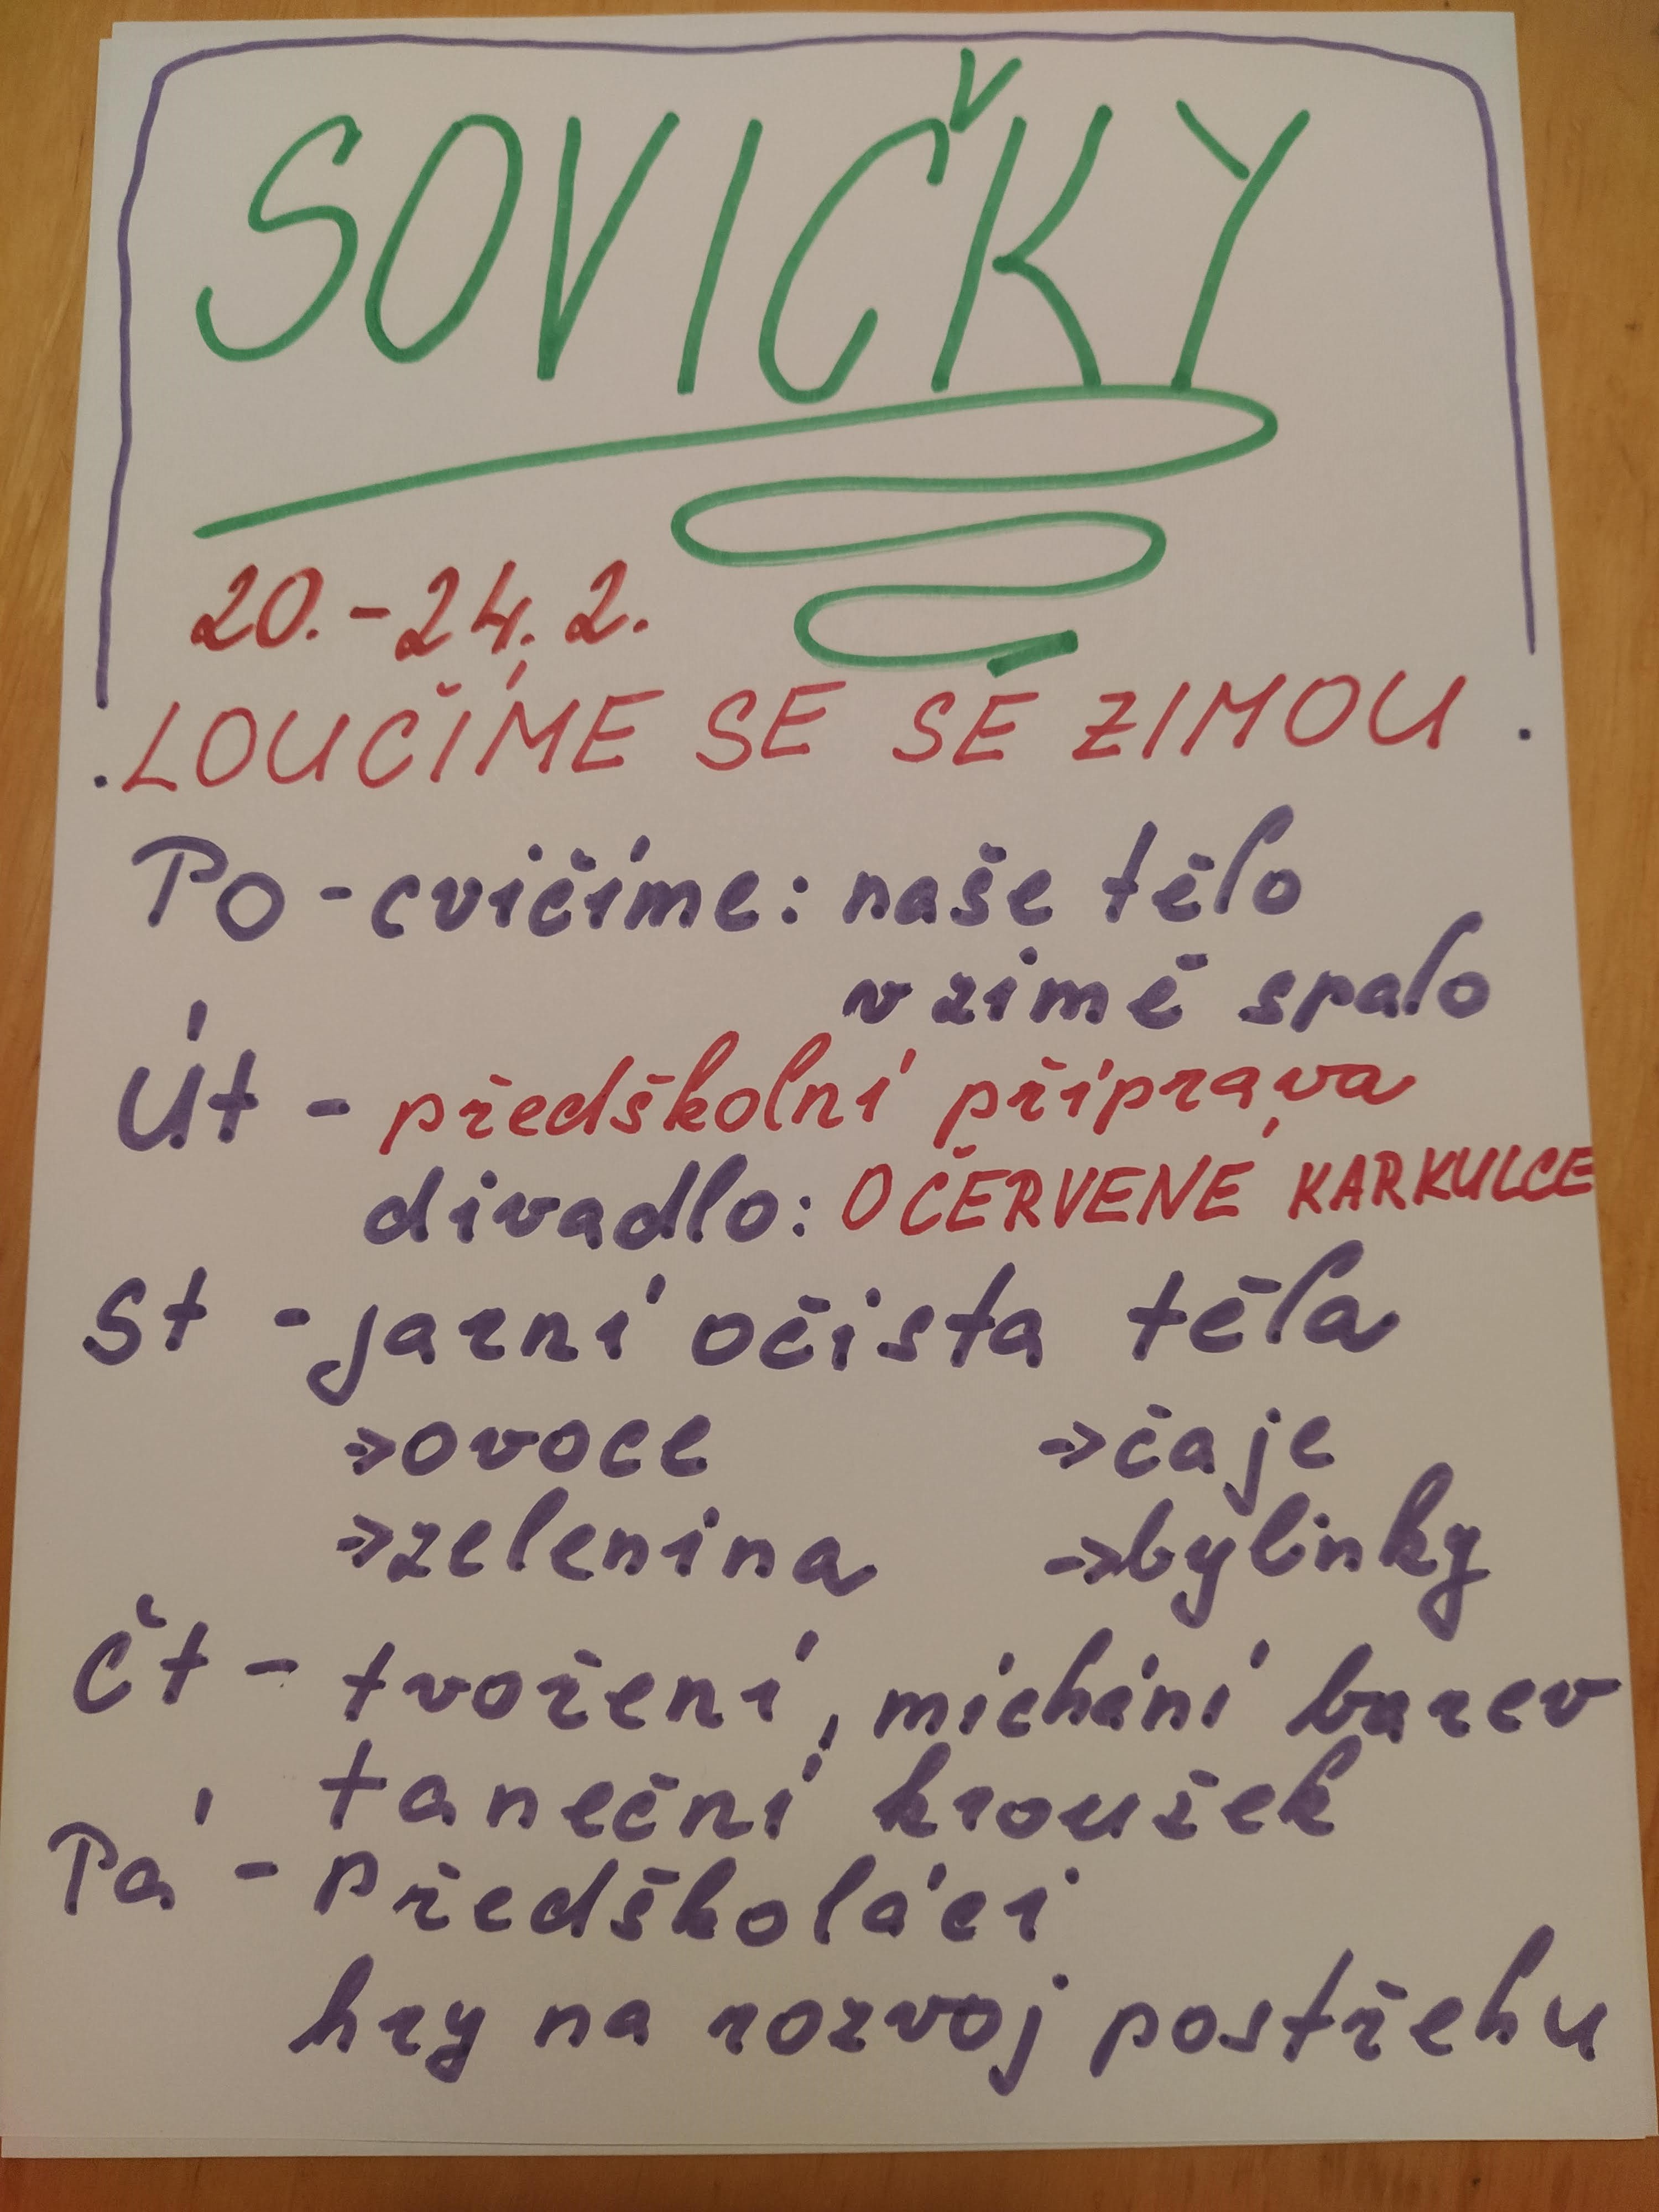 SOVIČKY
20.-24.2.
LOUČÍME SE SE ZIMOU
Po - cvičíme: naše tělo
v zimě spalo
Út - předškolní příprava
divadlo: O ČERVENÉ KARKULCE
St - jarní očista těla
→ovoce →čaje
→zelenina →bylinky
Čt - tvoření, míchání barev
taneční kroužek
Pá - Předškoláci
hry na rozvoj postřehu